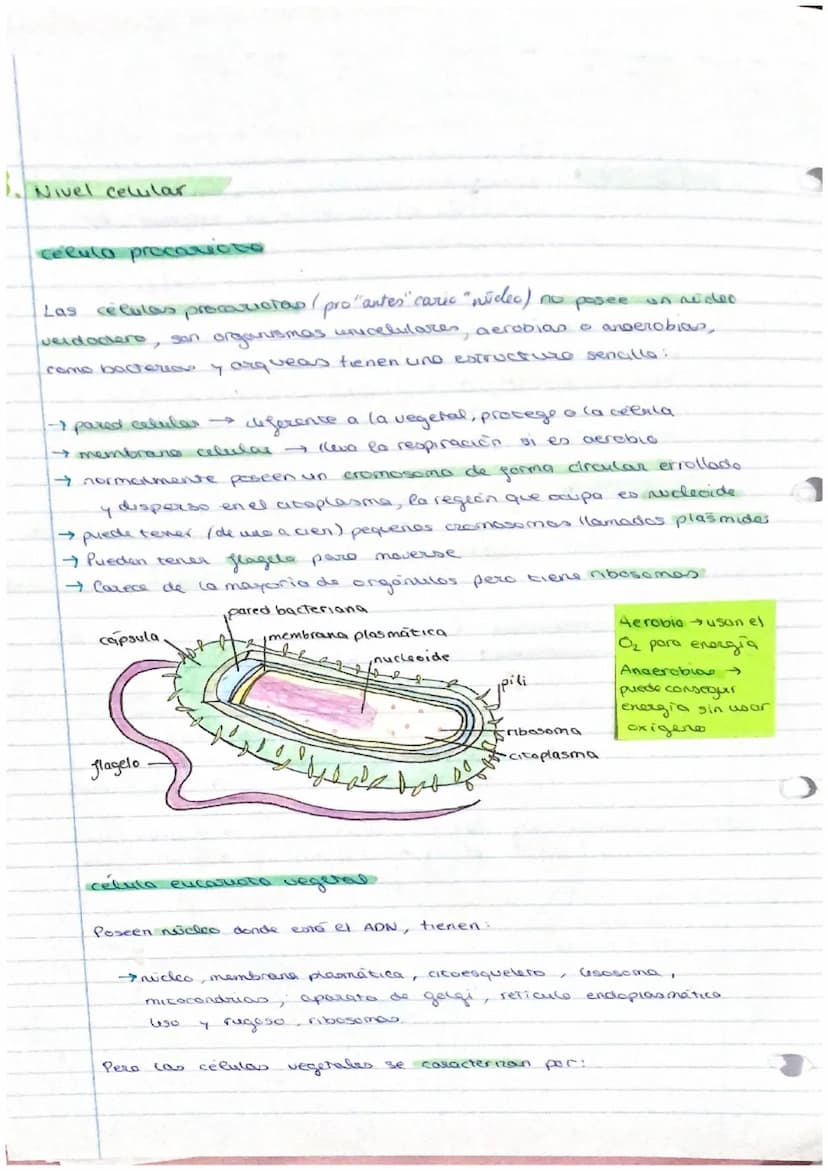 3. Nivel celular
célula procariota
Las células procariotas (pro "antes" cario "núcleo) no posee un núcleo
verdadero, son organismos unicelulares, aerobias o anaerobias,
como bacterias y arqueas tienen una estructura sencilla:
→ pared celular → diferente a la vegetal, protege a la célula
→ membrana celular → lleva la respiración si es aerobia
→ normalmente poseen un cromosoma de forma circular errollado
y disperso en el citoplasma, la región que ocupa es nucleoide
→ puede tener (de uno a cien) pequeños cromosomas llamados plásmides
→ Pueden tener flagelo para moverse
→ Carece de la mayoría de orgánulos pero tiene ribosomas
pared bacteriana
cápsula
membrana plasmática
nucleoide
pili
ribosoma
citoplasma
flagelo
Aerobia → usan el
O₂ para energía
Anaerobias →
puede conseguir
energía sin usar
oxígeno
célula eucariota vegetal
Poseen núcleo donde está el ADN, tienen:
→ núcleo, membrana plasmática, citoesqueleto, lisosoma,
mitocondrias, aparato de golgi, retículo endoplasmático
liso y rugoso, ribosomas.
Pero las células vegetales se caracterizan por: